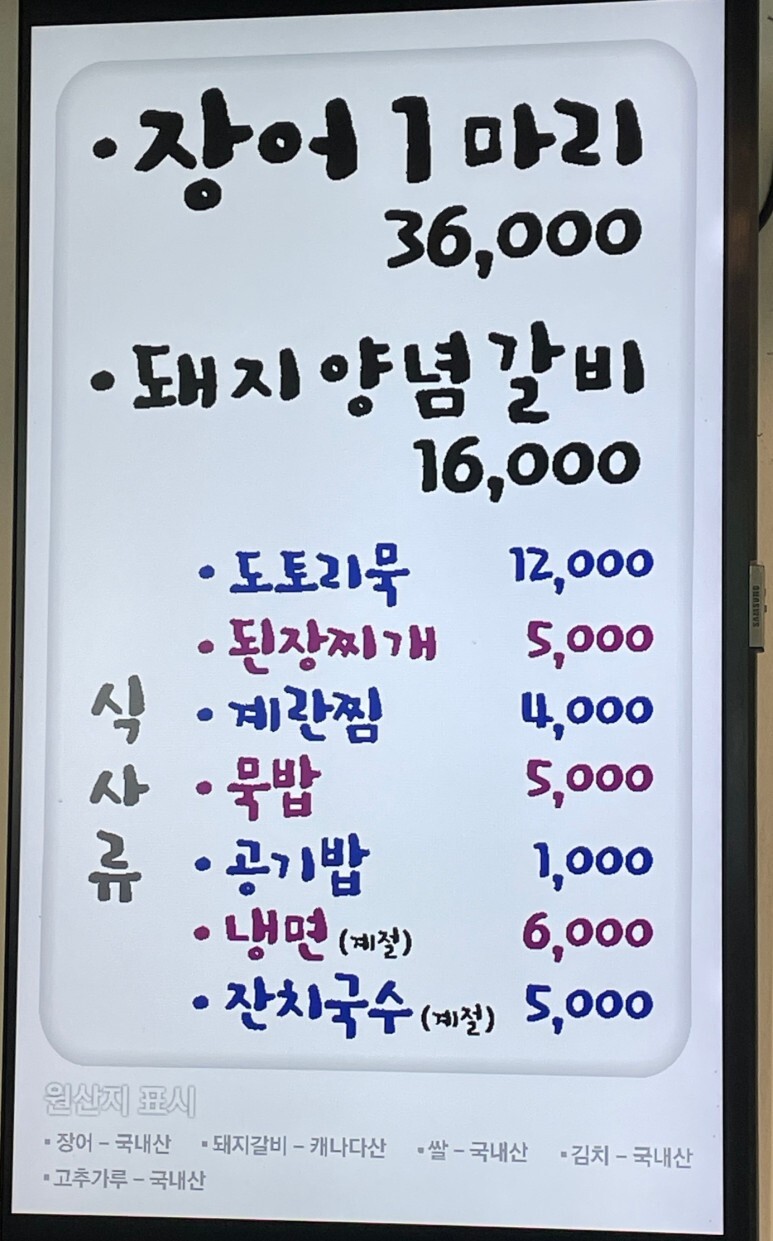 ·장어 1마리
36,000
·돼지양념갈비
16,000
식사류
·도토리묵 12,000
·된장찌개 5,000
·계란찜 4,000
·묵밥 5,000
·공기밥 1,000
·냉면(계절) 6,000
·잔치국수(계절) 5,000
원산지 표시
▪장어 – 국내산 ▪돼지갈비 – 캐나다산 ▪쌀 – 국내산 ▪김치 – 국내산
▪고추가루 – 국내산
SAMSUNG